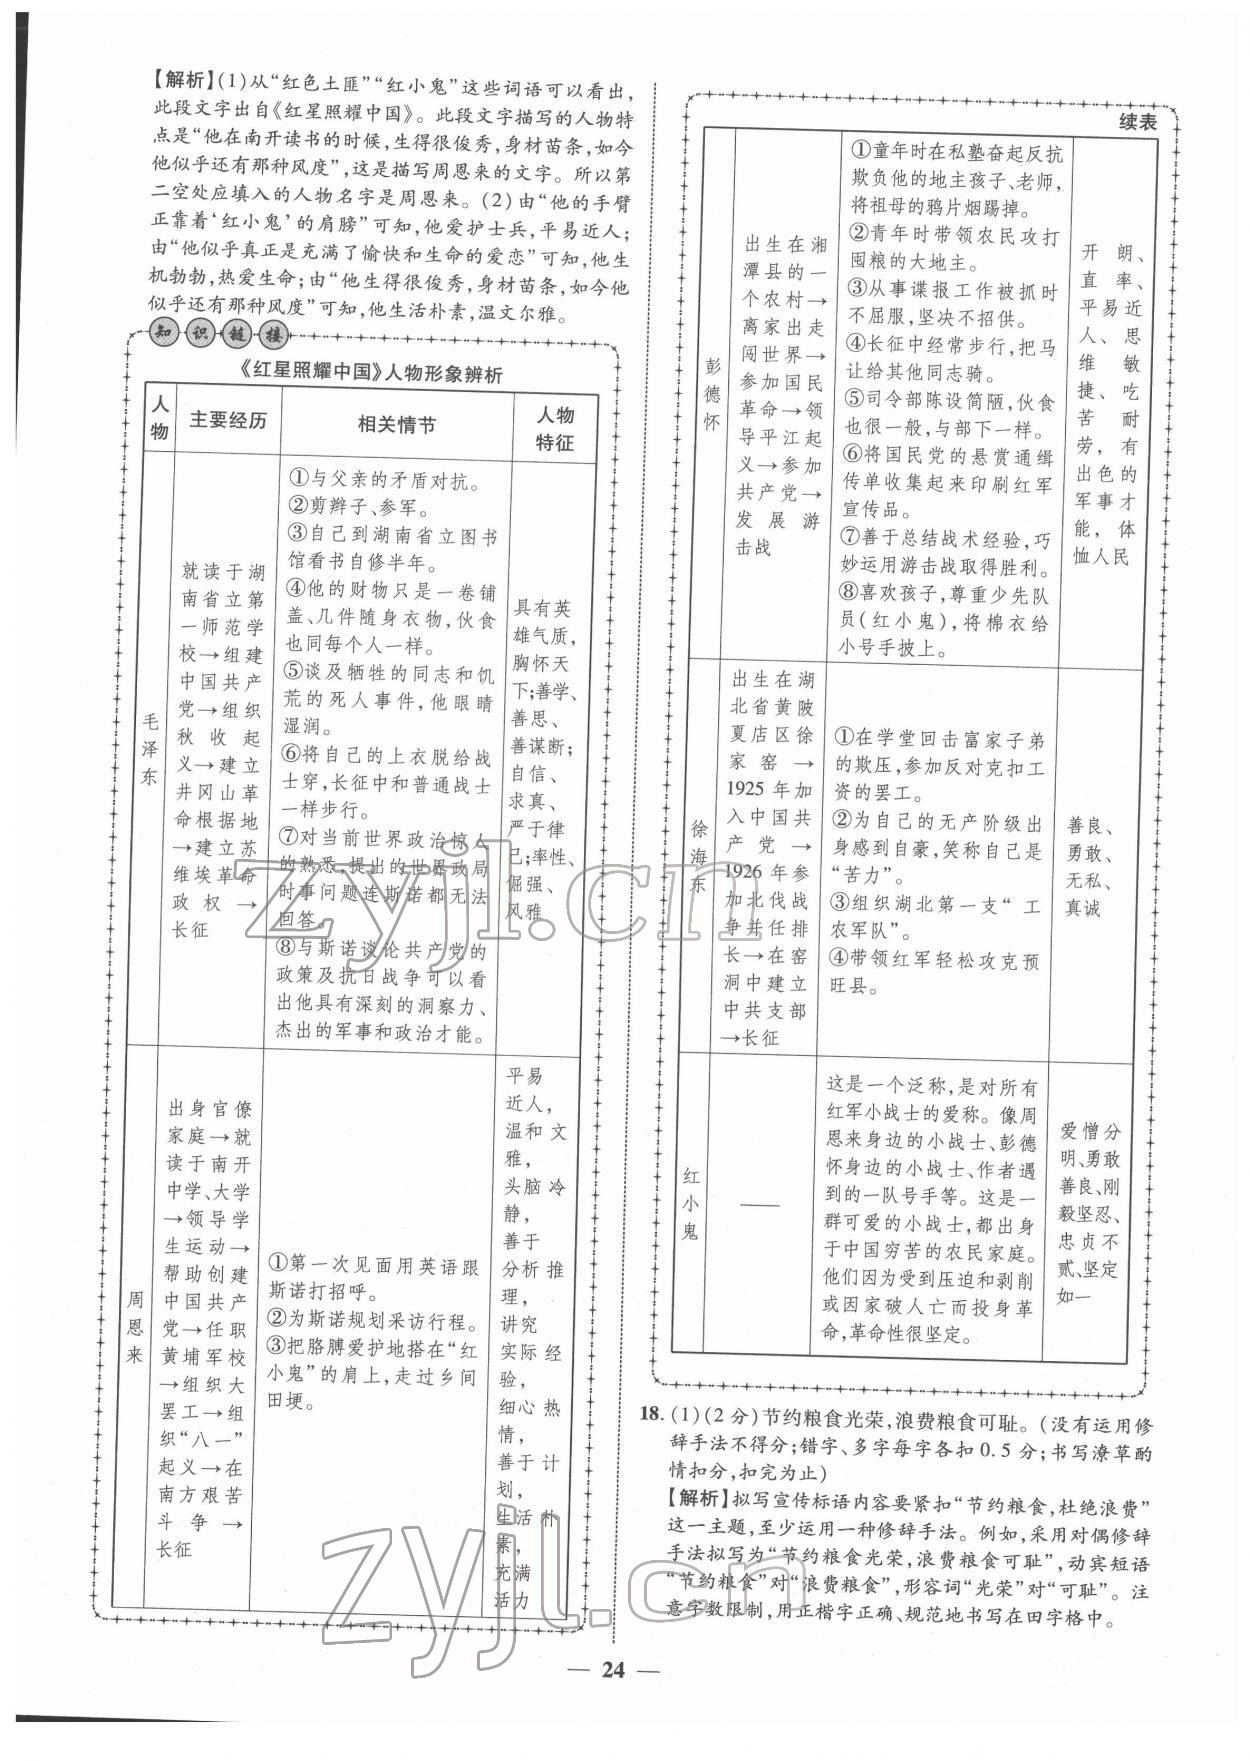 【解析】(1)从“红色土匪”“红小鬼”这些词语可以看出,
此段文字出自《红星照耀中国》。此段文字描写的人物特
点是“他在南开读书的时候,生得很俊秀,身材苗条,如今
他似乎还有那种风度”,这是描写周恩来的文字。所以第
二空处应填入的人物名字是周恩来。(2)由“他的手臂
正靠着‘红小鬼’的肩膀”可知,他爱护士兵,平易近人;
由“他似乎真正是充满了愉快和生命的爱恋”可知,他生
机勃勃,热爱生命;由“他生得很俊秀,身材苗条,如今他
似乎还有那种风度”可知,他生活朴素,温文尔雅。
知识链接
《红星照耀中国》人物形象辨析
人
物
主要经历
相关情节
人物
特征
毛
泽
东
就读于湖
南省立第
一师范学
校→组建
中国共产
党→组织
秋收起
义→建立
井冈山革
命根据地
→建立苏
维埃革命
政权→
长征
①与父亲的矛盾对抗。
②剪辫子、参军。
③自己到湖南省立图书
馆看书自修半年。
④他的财物只是一卷铺
盖、几件随身衣物,伙食
也同每个人一样。
⑤谈及牺牲的同志和饥
荒的死人事件,他眼睛
湿润。
⑥将自己的上衣脱给战
士穿,长征中和普通战士
一样步行。
⑦对当前世界政治惊人
的熟悉,提出的世界政局
时事问题连斯诺都无法
回答。
⑧与斯诺谈论共产党的
政策及抗日战争可以看
出他具有深刻的洞察力、
杰出的军事和政治才能。
具有英
雄气质,
胸怀天
下;善学、
善思、
善谋断;
自信、
求真、
严于律
己;率性、
倔强、
风雅
周
恩
来
出身官僚
家庭→就
读于南开
中学、大学
→领导学
生运动→
帮助创建
中国共产
党→任职
黄埔军校
→组织大
罢工→组
织“八一”
起义→在
南方艰苦
斗争→
长征
①第一次见面用英语跟
斯诺打招呼。
②为斯诺规划采访行程。
③把胳膊爱护地搭在“红
小鬼”的肩上,走过乡间
田埂。
平易
近人,
温和文
雅,
头脑冷
静,
善于
分析推
理,
讲究
实际经
验,
细心热
情,
善于计
划,
生活朴
素,
充满
活力
续表
彭
德
怀
出生在湘
潭县的一
个农村→
离家出走
闯世界→
参加国民
革命→领
导平江起
义→参加
共产党→
发展游
击战
①童年时在私塾奋起反抗
欺负他的地主孩子、老师,
将祖母的鸦片烟踢掉。
②青年时带领农民攻打
囤粮的大地主。
③从事谍报工作被抓时
不屈服,坚决不招供。
④长征中经常步行,把马
让给其他同志骑。
⑤司令部陈设简陋,伙食
也很一般,与部下一样。
⑥将国民党的悬赏通缉
传单收集起来印刷红军
宣传品。
⑦善于总结战术经验,巧
妙运用游击战取得胜利。
⑧喜欢孩子,尊重少先队
员(红小鬼),将棉衣给
小号手披上。
开朗、
直率、
平易近
人、思
维敏
捷、吃
苦耐
劳,有
出色的
军事才
能,体
恤人民
徐
海
东
出生在湖
北省黄陂
夏店区徐
家窑→
1925年加
入中国共
产党→
1926年参
加北伐战
争并任排
长→在窑
洞中建立
中共支部
→长征
①在学堂回击富家子弟
的欺压,参加反对克扣工
资的罢工。
②为自己的无产阶级出
身感到自豪,笑称自己是
“苦力”。
③组织湖北第一支“工
农军队”。
④带领红军轻松攻克预
旺县。
善良、
勇敢、
无私、
真诚
红
小
鬼
——
这是一个泛称,是对所有
红军小战士的爱称。像周
恩来身边的小战士、彭德
怀身边的小战士、作者遇
到的一队号手等。这是一
群可爱的小战士,都出身
于中国穷苦的农民家庭。
他们因为受到压迫和剥削
或因家破人亡而投身革
命,革命性很坚定。
爱憎分
明、勇敢
善良、刚
毅坚忍、
忠贞不
贰、坚定
如一
18. (1)(2分)节约粮食光荣,浪费粮食可耻。(没有运用修
辞手法不得分;错字、多字每字各扣0.5分;书写潦草酌
情扣分,扣完为止)
【解析】拟写宣传标语内容要紧扣“节约粮食,杜绝浪费”
这一主题,至少运用一种修辞手法。例如,采用对偶修辞
手法拟写为“节约粮食光荣,浪费粮食可耻”,动宾短语
“节约粮食”对“浪费粮食”,形容词“光荣”对“可耻”。注
意字数限制,用正楷字正确、规范地书写在田字格中。
— 24 —
zyjl.cn
zyjl.cn